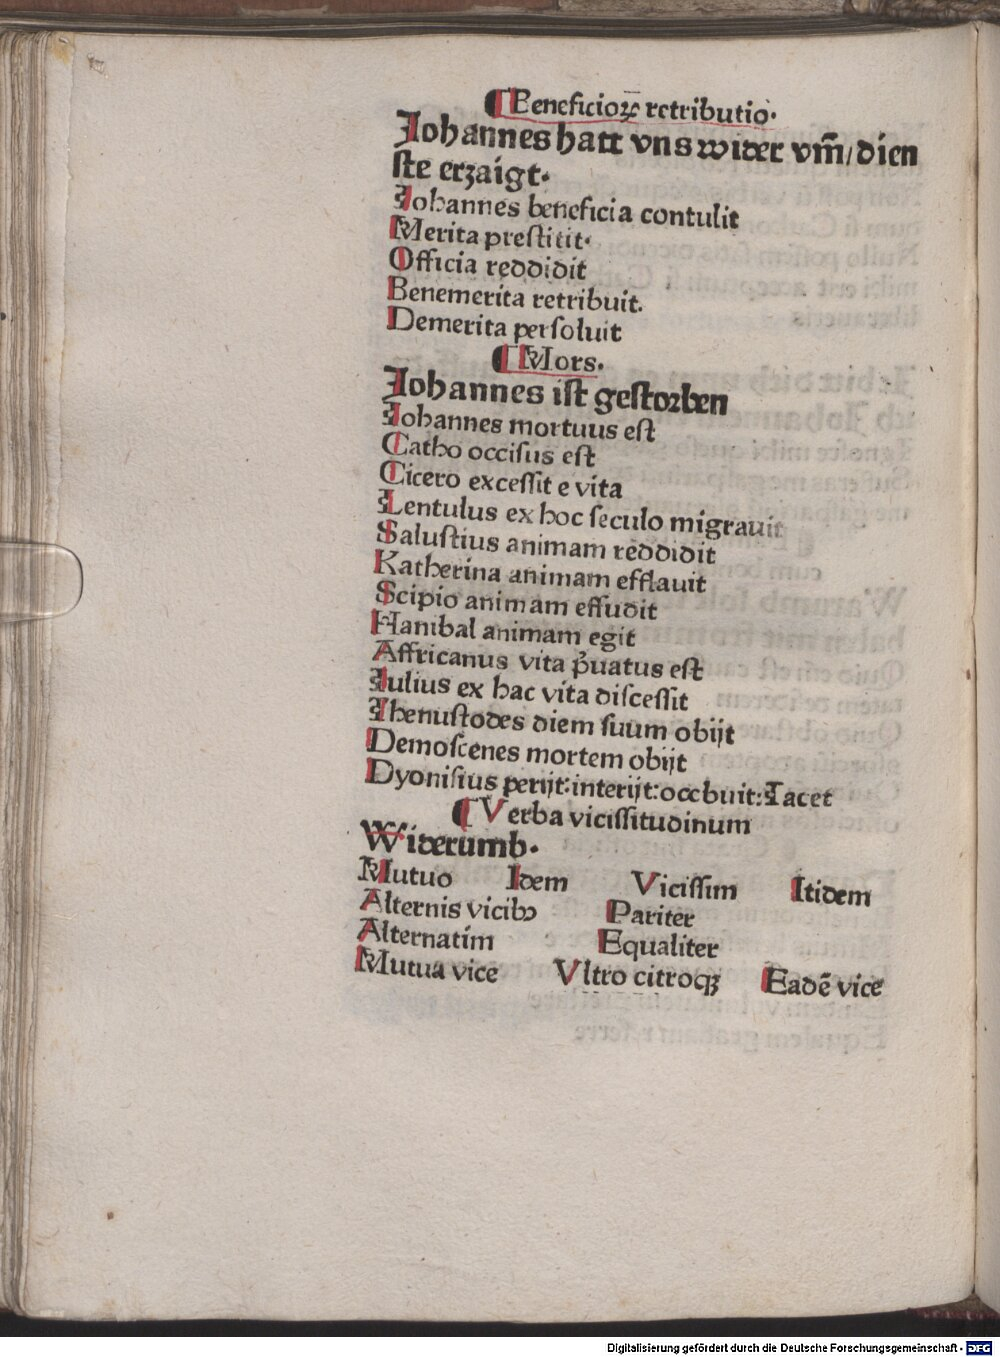 ¶Beneficioꝝ retributio.
Johannes hatt vns wider vm̄/dien
ſte erzaigt.
Johannes beneficia contulit
Merita preſtitit.
Officia reddidit
Benemerita retribuit.
Demerita perſoluit
¶Mors.
Johannes iſt geſtorben
Johannes mortuus eſt
Catho occiſus eſt
Cicero exceſſit e vita
Lentulus ex hoc ſeculo migrauit
Saluſtius animam reddidit
Katherina animam efflauit
Scipio animam effudit
Hanibal animam egit
Affricanus vita p̄uatus eſt
Julius ex hac vita diſceſſit
Thenuſtodes diem ſuum obijt
Demoſcenes mortem obijt
Dyoniſius perijt:interijt:occbuit:Iacet
¶Verba viciſſitudinum
Widerumb.
Mutuo Idem Viciſſim Itidem
Alternis vicibꝰ Pariter
Alternatim Equaliter
Mutua vice Vltro citroqꝫ Eadē vice
Digitalisierung gefördert durch die Deutsche Forschungsgemeinschaft - DFG